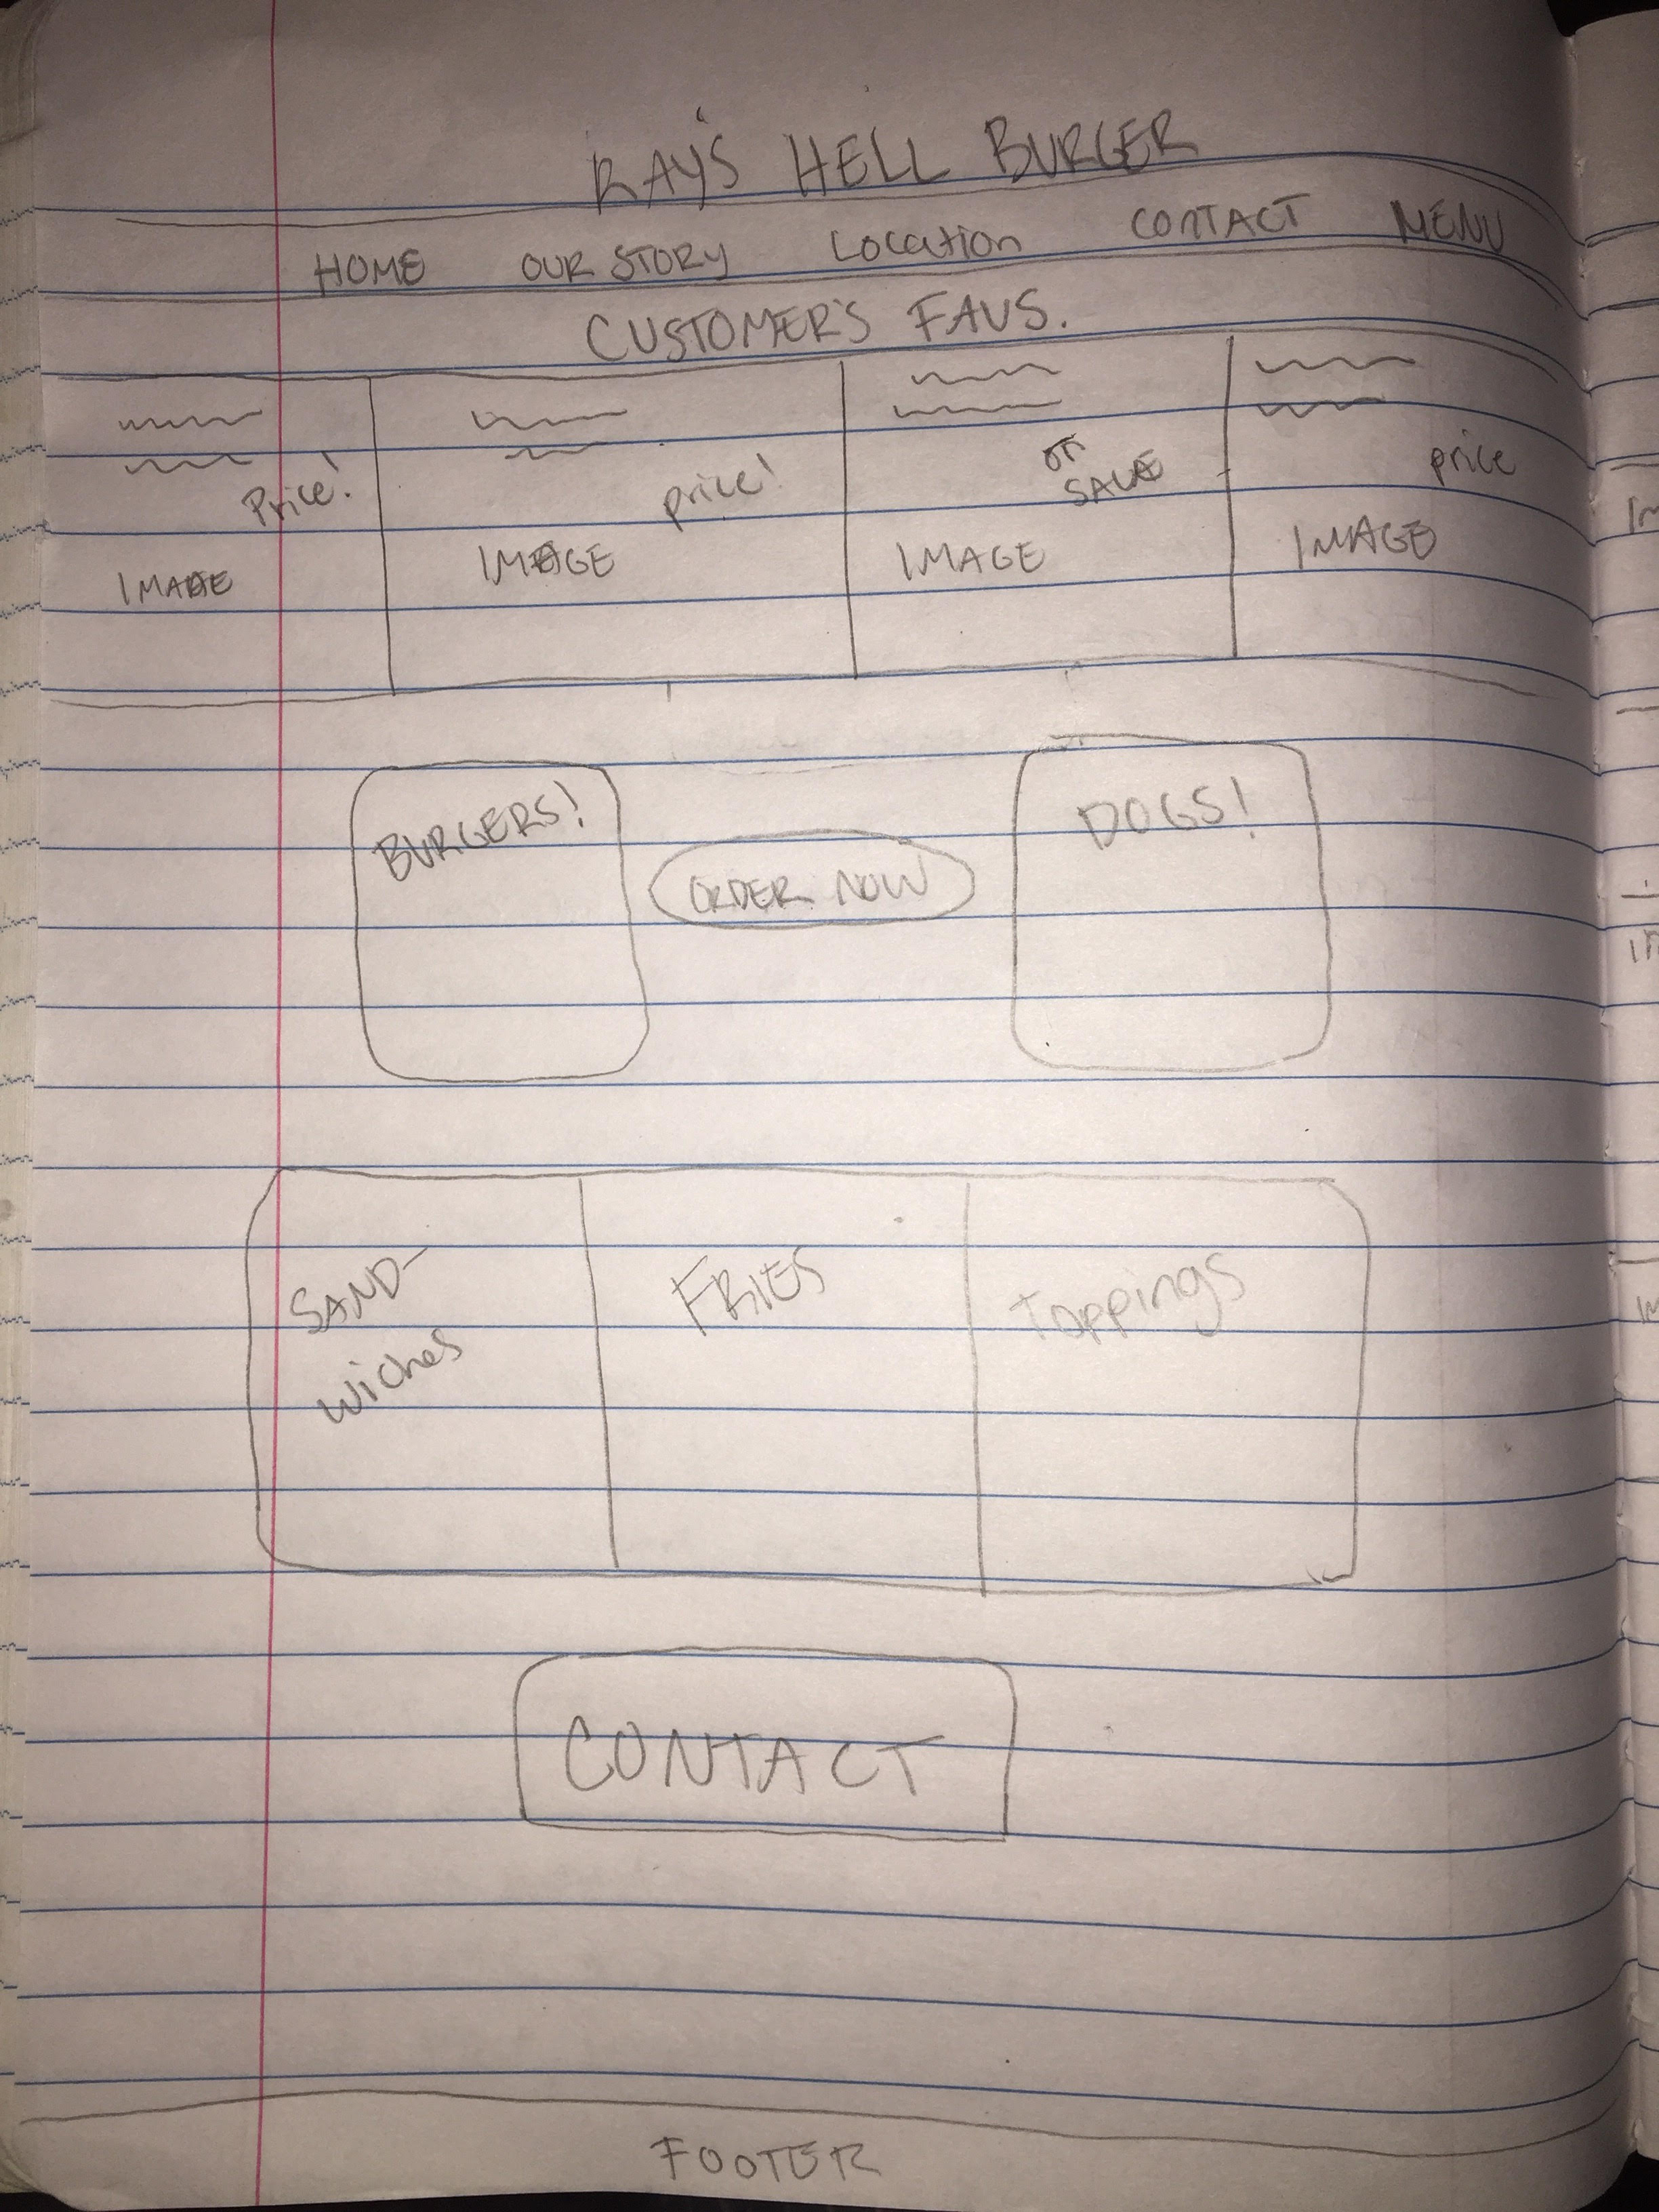 RAY'S HELL BURGER
HOME OUR STORY Location CONTACT MENU
CUSTOMER'S FAVS.
Price!
IMAGE
price!
IMAGE
on
SALE
IMAGE
price
IMAGE
BURGERS!
ORDER NOW
DOGS!
SAND-
wiches
FRIES
Toppings
CONTACT
FOOTER